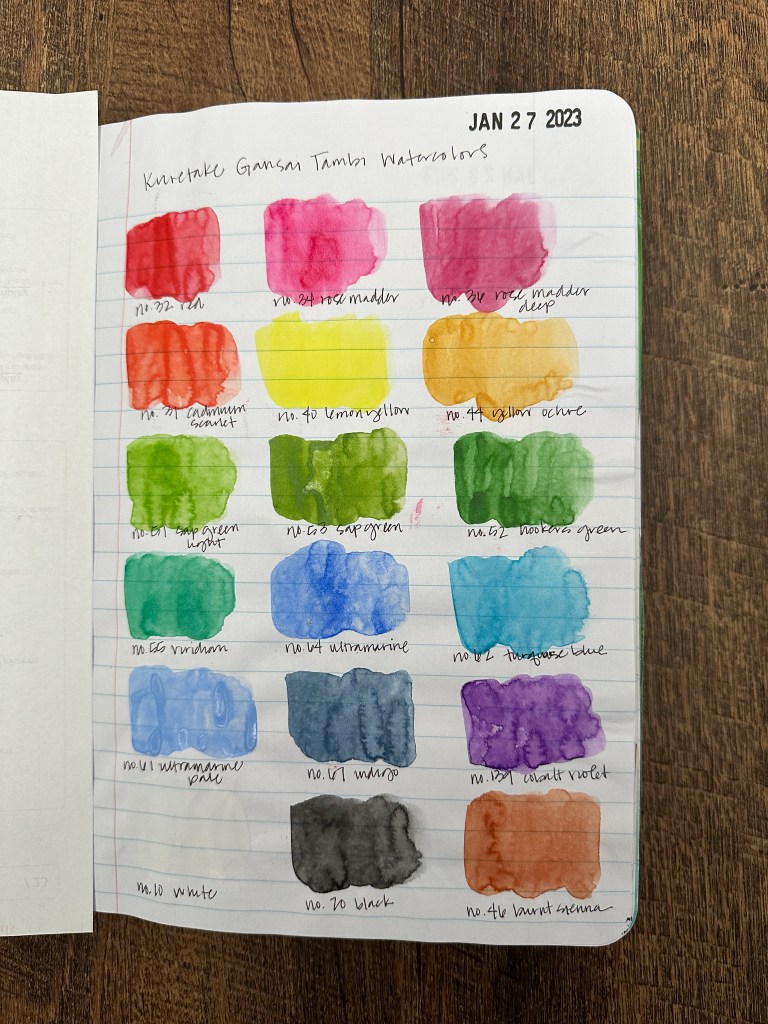 JAN 27 2023
Kuretake Gansai Tambi Watercolors
no.32 red
no.34 rose madder
no.36 rose madder
deep
no.31 cadmium
scarlet
no.40 lemon yellow
no.44 yellow ochre
no.51 sap green
light
no.53 sap green
no.52 hookers green
no.55 viridian
no.64 ultramarine
no.62 turquoise blue
no.61 ultramarine
pale
no.67 indigo
no.139 cobalt violet
no.10 white
no.20 black
no.46 burnt sienna